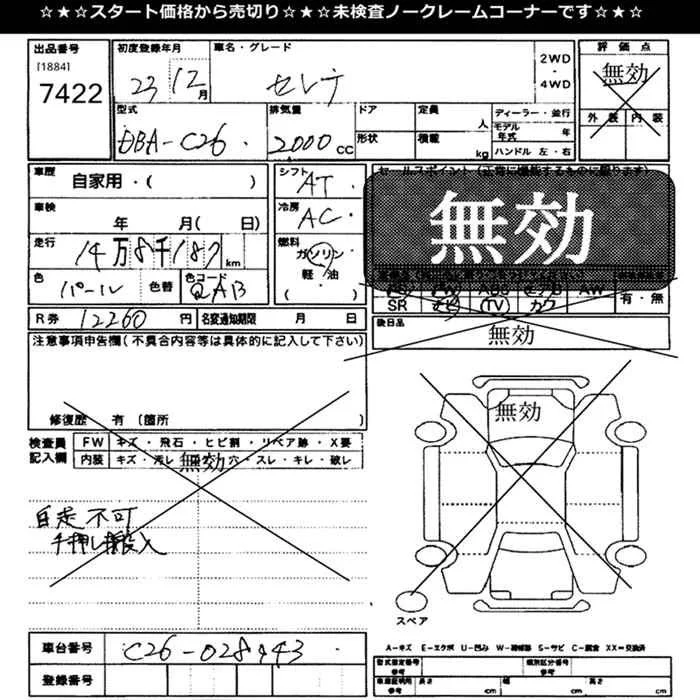 ☆★☆★スタート価格から売切り☆★☆★未検査ノークレームコーナーです☆★☆
出品番号 初度登録年月 車名・グレード 2WD 評価点
[1884] 23 12月 セレナ ・ 無効
7422 4WD
型式 排気量 ドア 定員 人 ディーラー・並行 外装 内装
DBA-C26 2000 CC 形状 積載 kg モデル年式 年
ハンドル 左・右
車歴 自家用・( ) シフト AT セールスポイント(正常に機能するものに限ります)
車検 年 月( 日) 冷房 AC 無効
走行 14万8千187km 燃料 ガソリン
色 パール 色替 色コード QAB 軽・油
( ) SR ナビ TV カワ AW 有・無
R券 12260円 名変通知期限 月 日 後日品 無効
注意事項申告欄(不具合内容等は具体的に記入して下さい)
無効
修復歴 有 (箇所 )
検査員 FW キズ・飛石・ヒビ割・リペア跡・X要
記入欄 内装 キズ・汚レ 無効 穴・スレ・キレ・破レ
自走不可
手押し搬入
スペア
車台番号 C26-028943
A-キズ E-エクボ U-凹み W-補修跡 S-サビ C-腐食 XX=交換済
登録番号 型式指定番号 参考 類別区分番号 参考
車庫証明用 参考 長さ cm 幅 cm 高さ cm